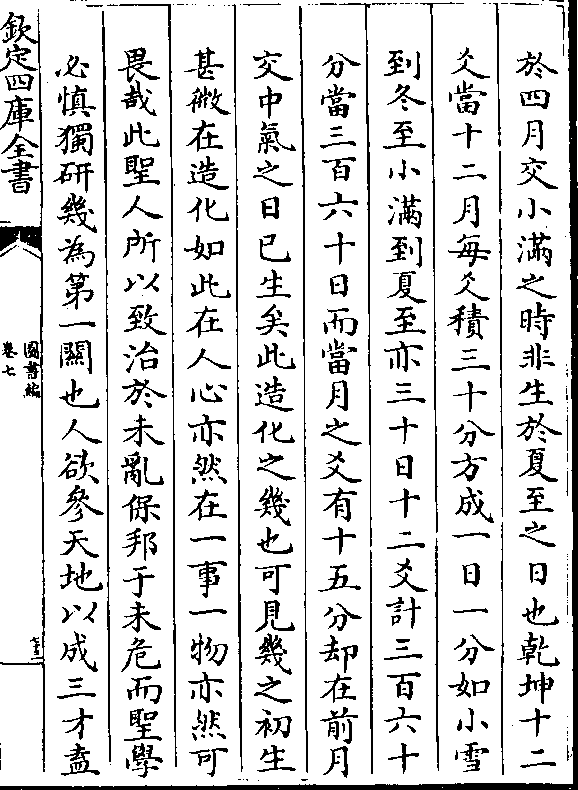 於四月交小滿之時非生於夏至之日也乾坤十二
爻當十二月每爻積三十分方成一日一分如小雪
到冬至小滿到夏至亦三十日十二爻計三百六十
分當三百六十日而當月之爻有十五分却在前月
交中氣之日已生矣此造化之幾也可見幾之初生
甚微在造化如此在人心亦然在一事一物亦然可
畏哉此聖人所以致治於未亂保邦于未危而聖學
必慎獨研幾為第一關也人欲參天地以成三才盍
欽定四庫全書
圖書編
卷七